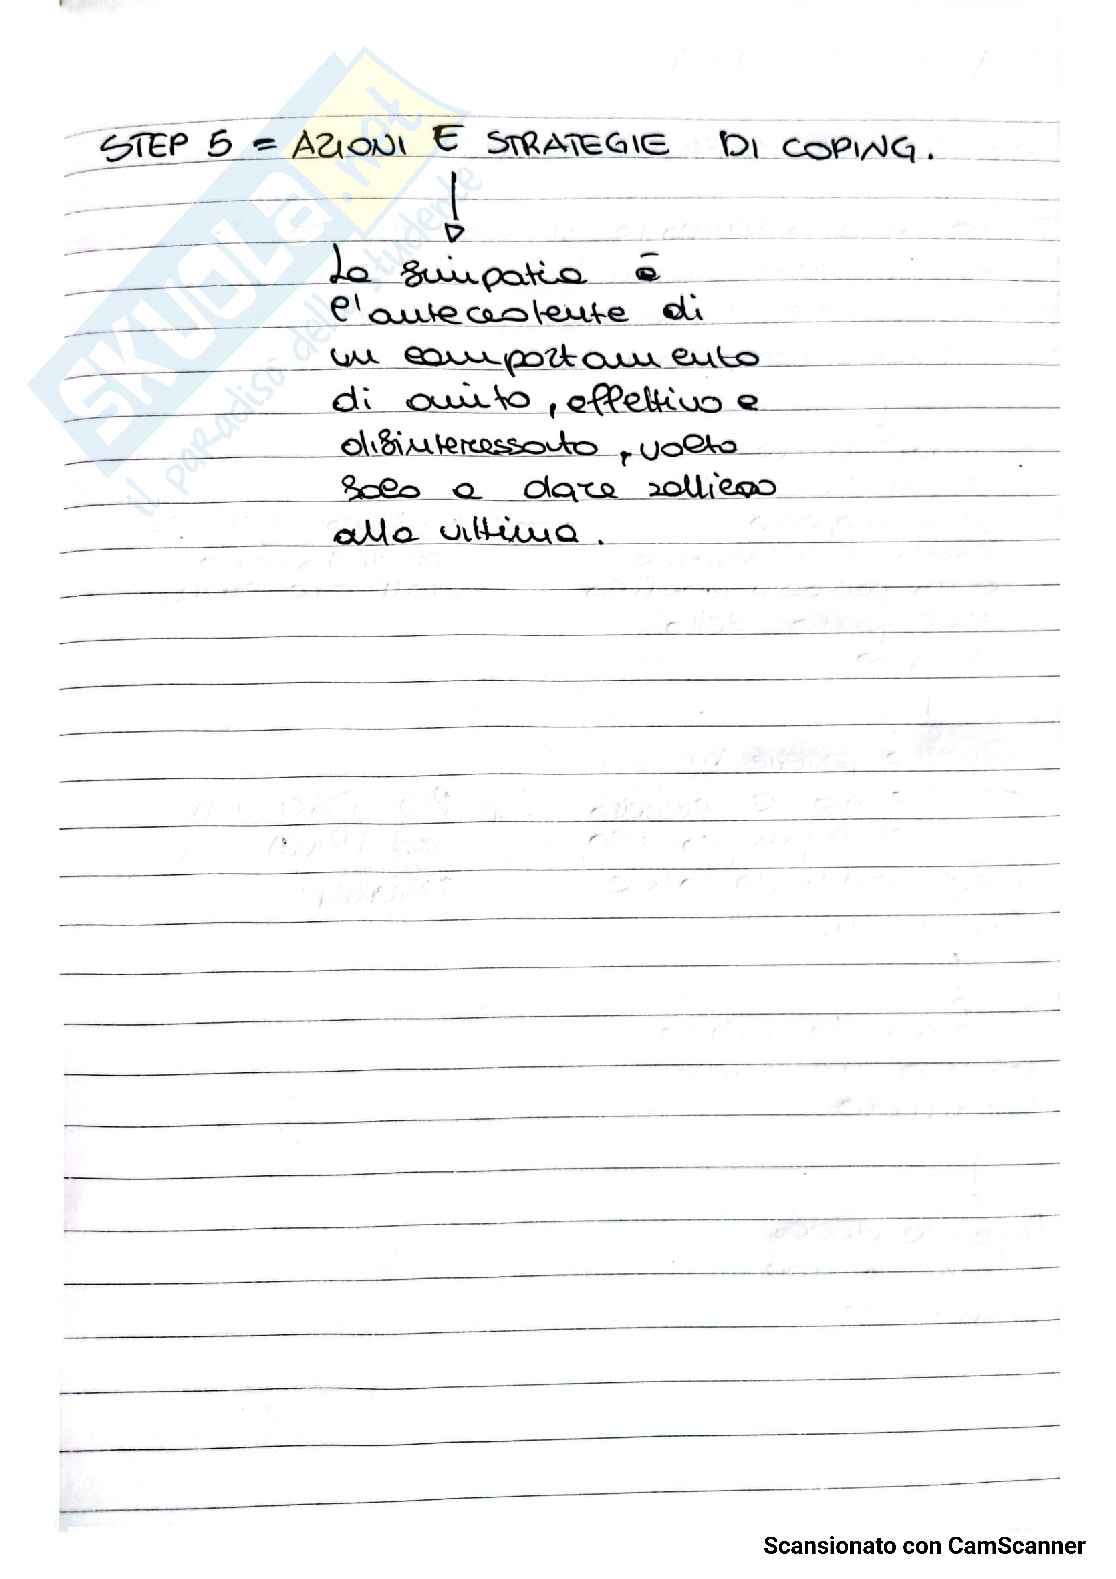 STEP 5 = AZIONI E STRATEGIE DI COPING.
La simpatia è
l'antecedente di
un comportamento
di aiuto, effettivo e
disinteressato, volto
solo a dare sollievo
alla vittima.
SKUOLA.net
il paradiso dello studente
Scansionato con CamScanner